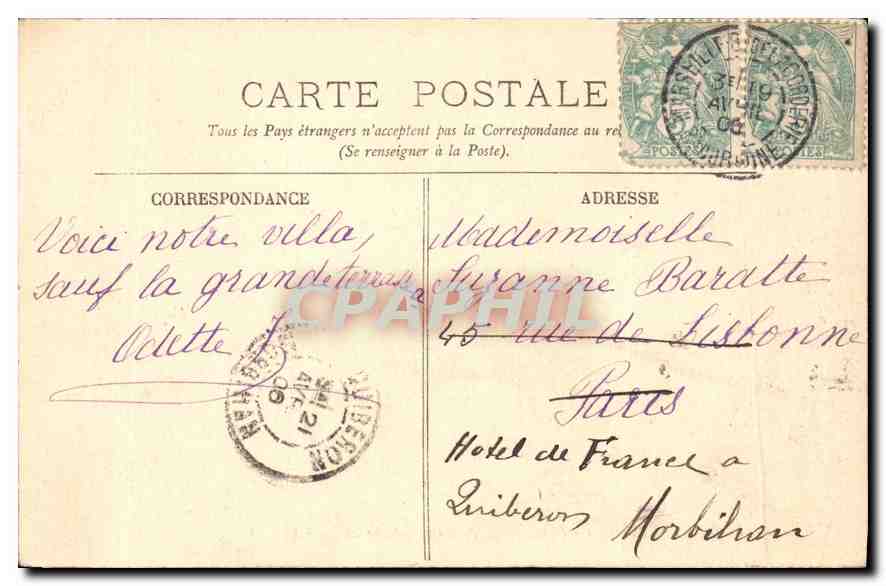 CARTE POSTALE
Tous les Pays étrangers n'acceptent pas la Correspondance au re
(Se renseigner à la Poste).
CORRESPONDANCE
Voici notre villa,
sauf la grande terrasse
Odette
ADRESSE
Mademoiselle
Suzanne Baratte
45 rue de Lisbonne
Paris
Hotel de France a
Quibéron
Morbihan
CPAPHIL
3E 19
AVRIL
06
POSTES
QUIBERON
MORBIHAN
21
AVRIL
06